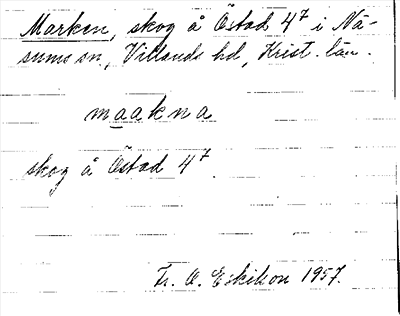 Marken, skog å Östad 4⁷ i Nä-
sums sn, Villands hd, Krist. län.
maakna
skog å Östad 4⁷.
Fr. O. Eskilson 1957.